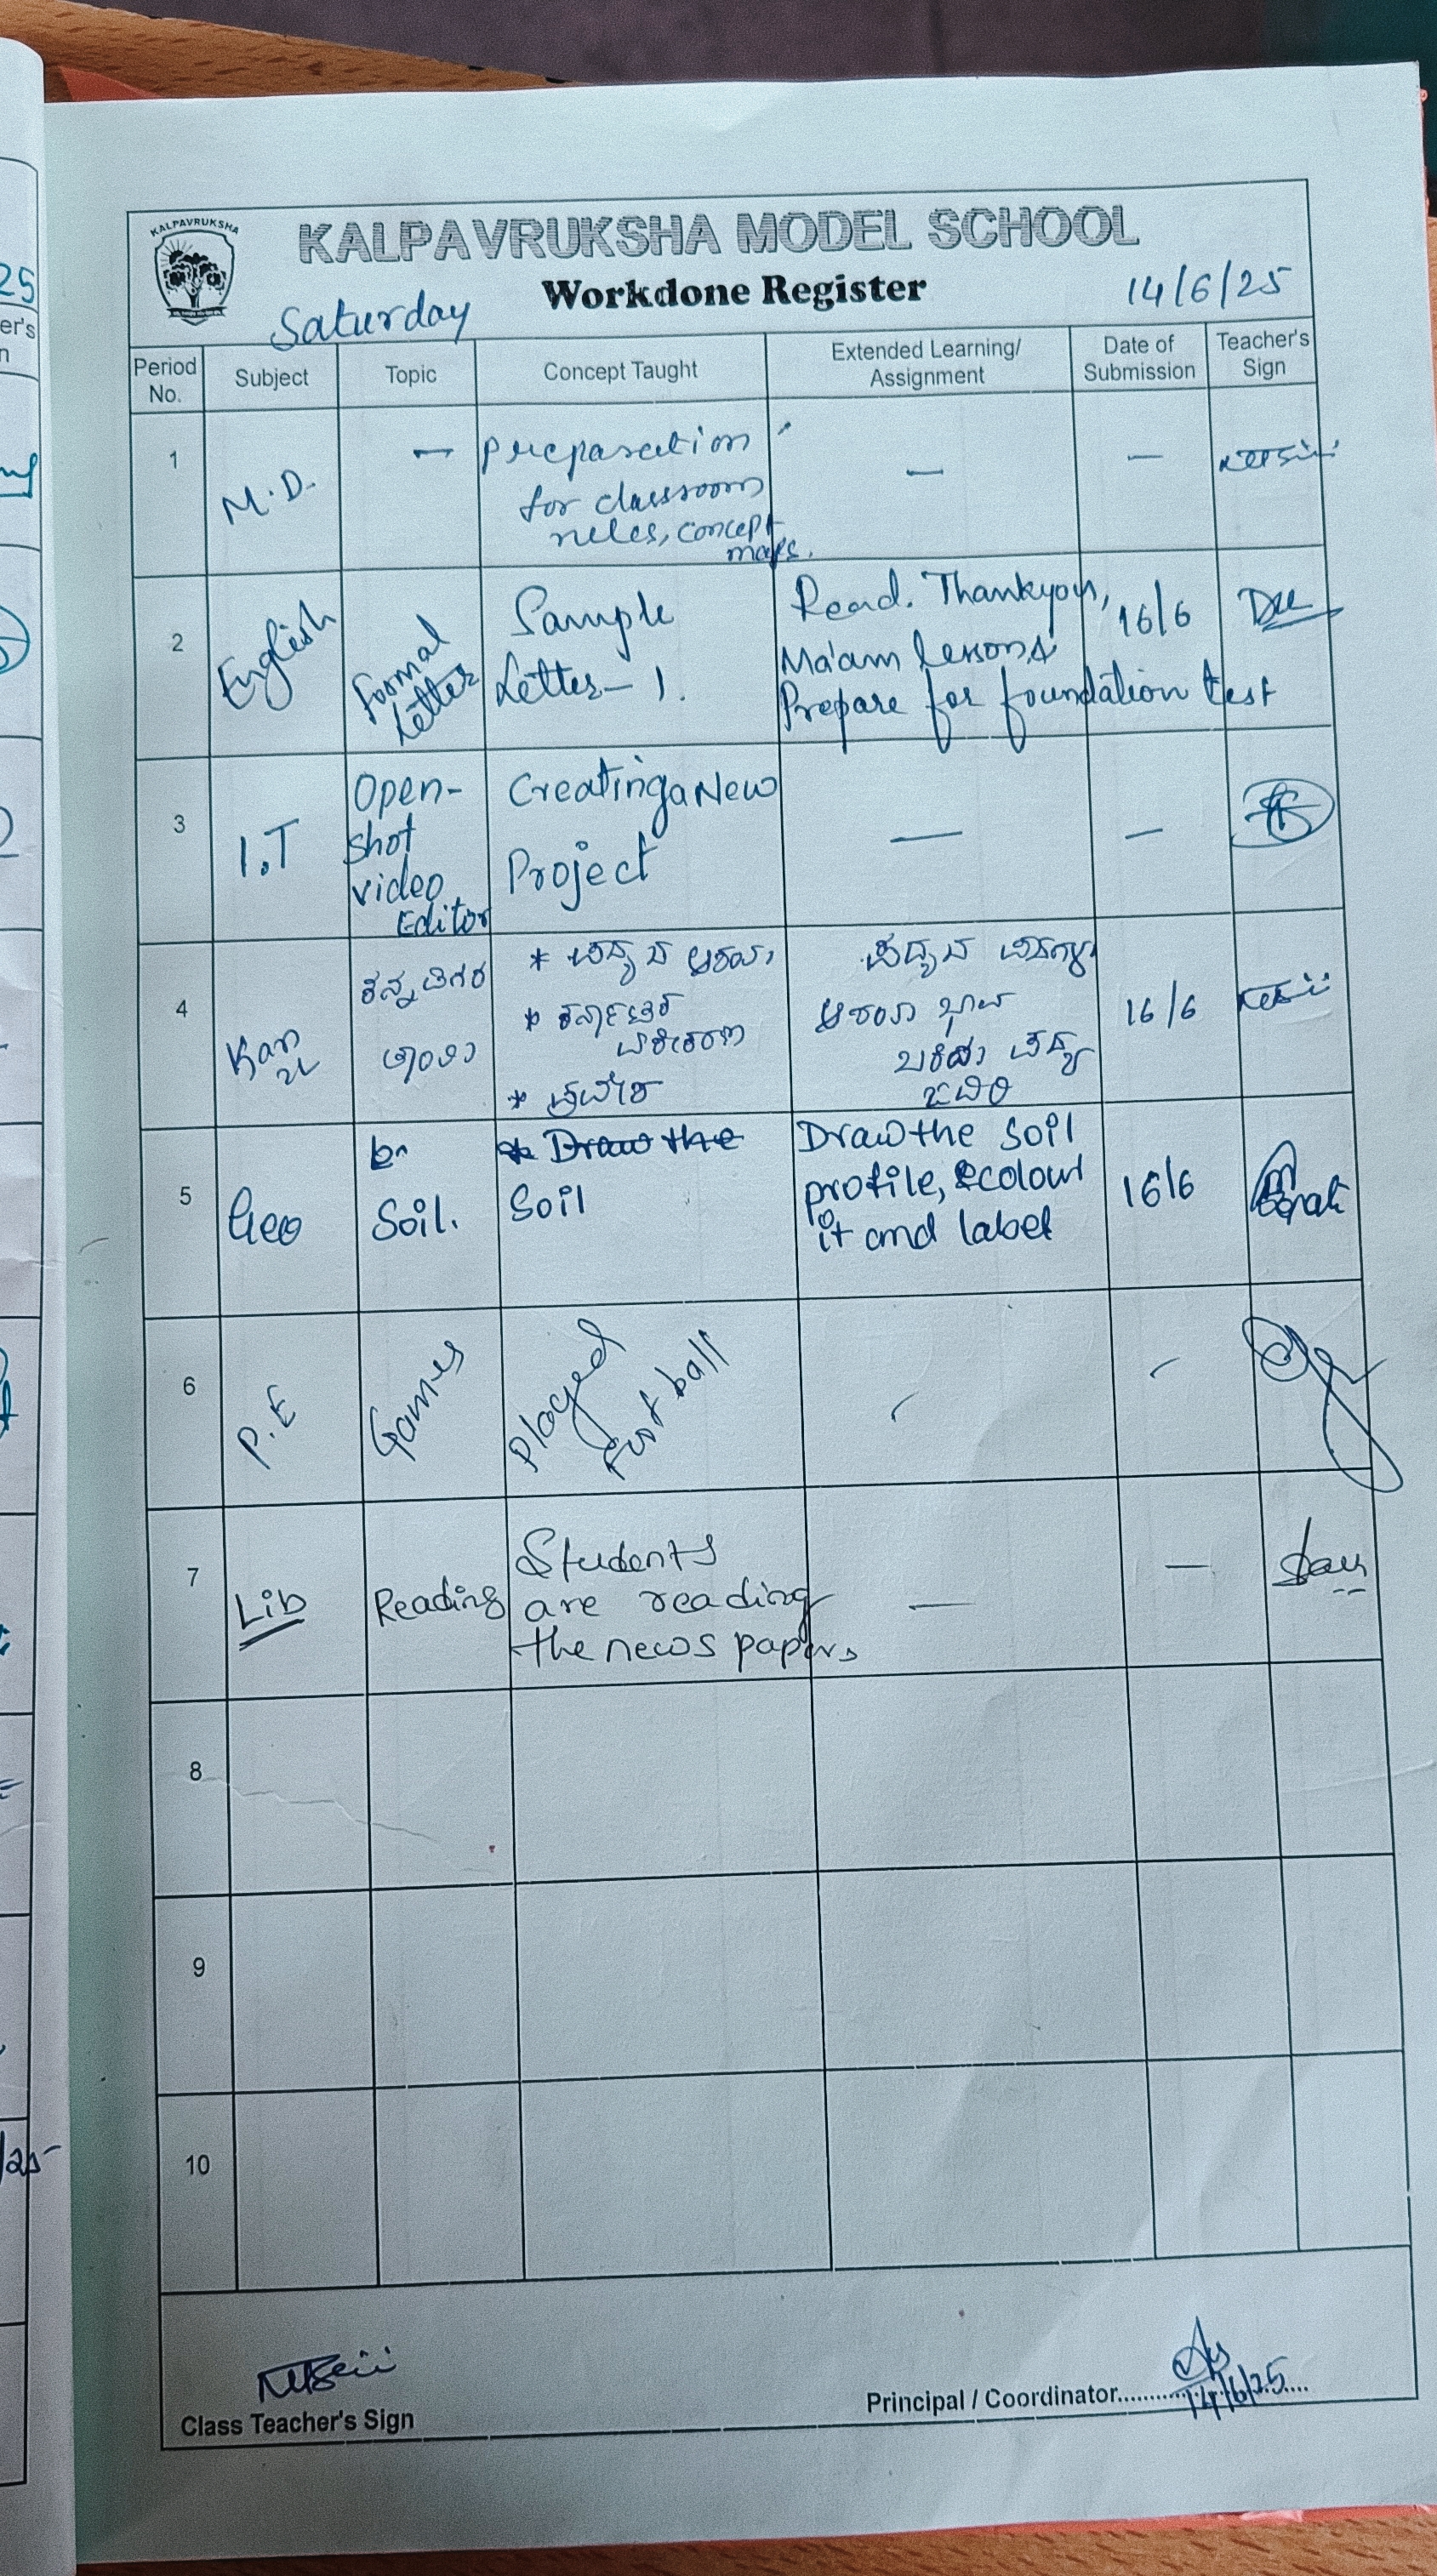 KALPAVRUKSHA
KALPAVRUKSHA MODEL SCHOOL
Workdone Register
Saturday
14/6/25
Period No.
Subject
Topic
Concept Taught
Extended Learning/ Assignment
Date of Submission
Teacher's Sign
1
M.D.
—
preparation
for classroom
rules, concept
maps.
—
—
2
English
Formal
Letter
Sample
Letter - 1.
Read. Thankyou,
Ma'am lessons
Prepare for foundation test
16/6
3
I.T
Open-
shot
video
Editor
Creating a New
Project
—
—
4
Kan
ಕನ್ನಡಿಗರ
* ಪದ್ಯದ
*
*
ಪದ್ಯದ
16/6
5
Geo
Soil.
Draw the
Soil
Draw the soil
profile, & colour
it and label
16/6
6
P.E
Games
Played
Foot ball
7
Lib
Reading
Students
are reading
the news papers
—
—
8
9
10
Class Teacher's Sign
Principal / Coordinator
14/6/25
25
er's
n
/25